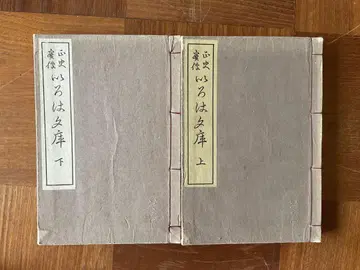 正史
実傳
いろは文庫
上
正史
実傳
いろは文庫
下